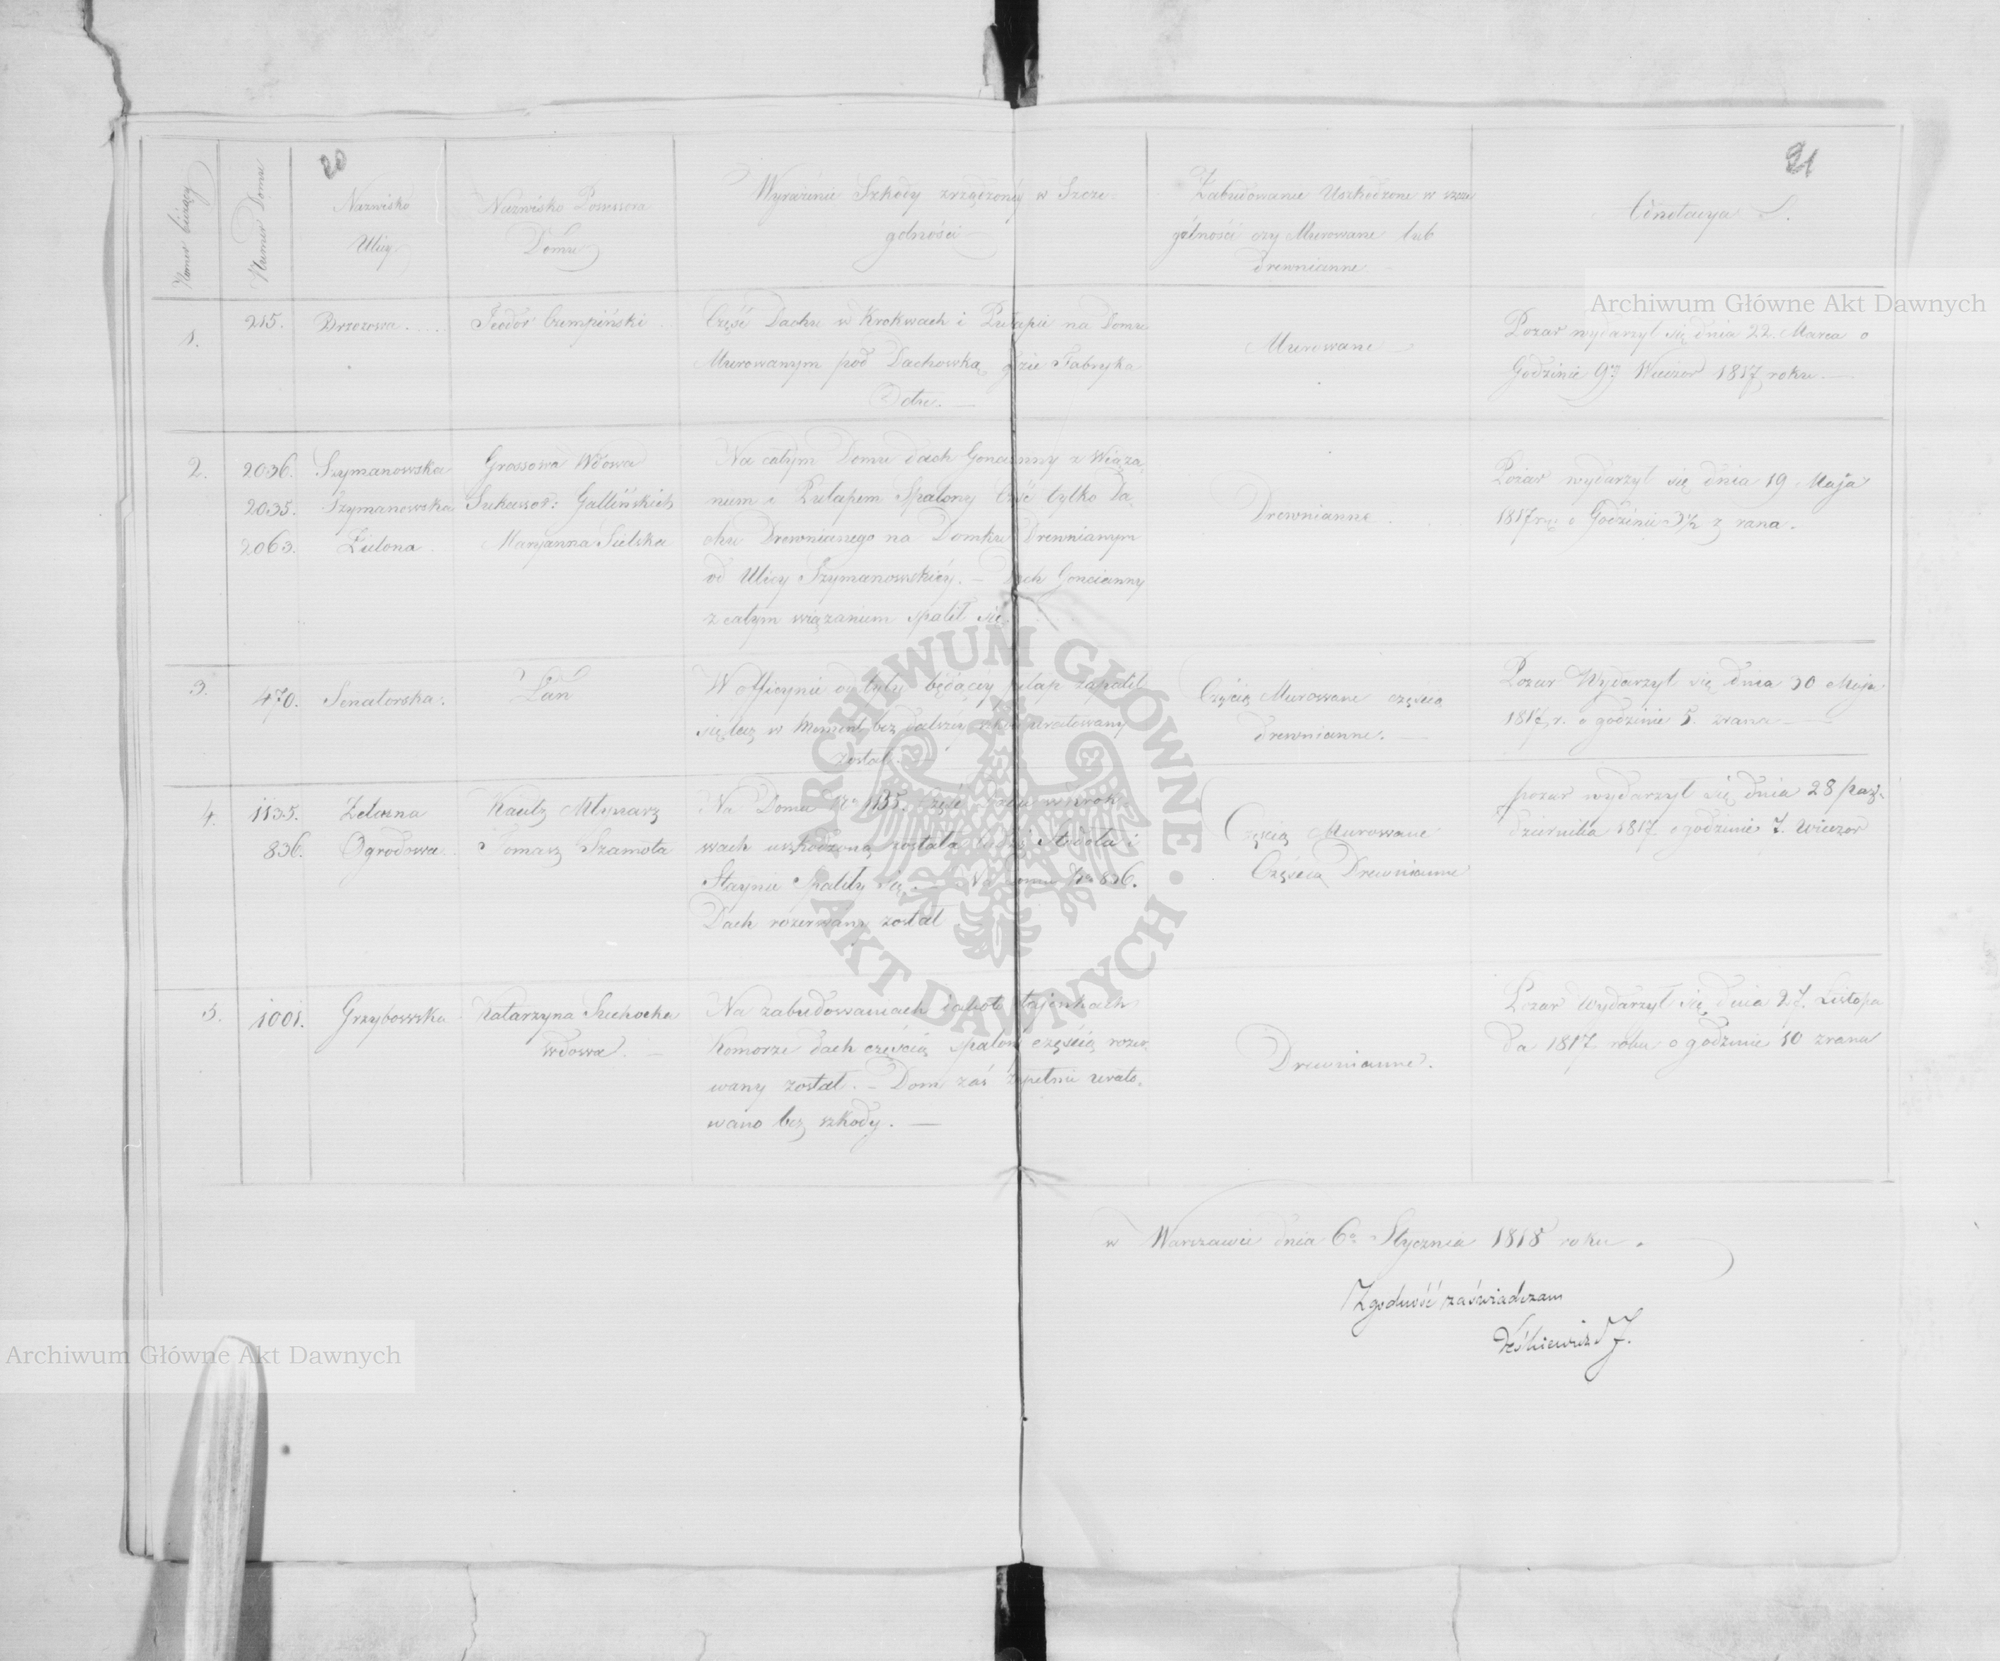 20
21
Numer bieżący
Numer Domu
Nazwisko
Ulicy
Nazwisko Possessora
Domu
Wyrażenie Szkody zrządzonéy w Szcze-
gólności
Zabudowanie Uszkodzone w szcze
gólności czy Murowane lub
drewnianne
Annotacya
1.
215.
Brzozowa
Teodor Czempiński
Część Dachu w Krokwach i Pułapie na Domu
Murowanym pod Dachowką, gdzie Fabryka
Octu.
Murowane
Pożar wydarzył się dnia 22. Marca o
Godzinie 9éy Wieczor 1817 roku.
2.
2036. Szymanowska
2035. Szymanowska
2063. Zielona
Grossowa Wdowa
Sukcessor: Gallińskich
Maryanna Sielska
Na całym Domu dach Goncianny z Wiąza-
niem i Pułapem Spalony Część tylko Da-
chu Drewnianego na Domku Drewnianym
od Ulicy Szymanowskiéy. – Dach Goncianny
z całym wiązaniem spalił się.
Drewnianne
Pożar wydarzył się dnia 19 Maja
1817 o Godzinie 3½ z rana.
3.
470. Senatorska.
Lan
W officynie od tyłu będącey pułap zapalił
się lecz w Moment bez dalszéy szkody uratowany
został.
Częścią Murowane częścią
drewnianne.
Pożar Wydarzył się dnia 30 Maja
1817. r. o godzinie 5. zrana
4.
1135. Żelazna
836. Ogrodowa
Kautz Młynarz
Tomasz Szamota
Na Domu No 1135. część w Krok-
wach uszkodzoną została Stodoła i
Staynie Spaliły się. – Na Domu No 836.
Dach rozerwany został
Częścią Murowane
Częścią Drewnianne
pożar wydarzył się dnia 28 paź-
dziernika 1817 o godzinie 7. Wieczor
5.
1001.
Grzybowska
Katarzyna Suchocka
Wdowa.
Na zabudowaniach
Komorze dach częścią spalon częścią rozer
wany został. – Dom zaś zupełnie urato-
wano bez szkody.
Drewnianne.
Pożar Wydarzył się dnia 27. Listopa
da 1817 roku o godzinie 10 zrana
w Warszawie dnia 6o Stycznia 1818 roku.
Zgodność zaświadczam
Archiwum Główne Akt Dawnych
Archiwum Główne Akt Dawnych
ARCHIWUM GŁÓWNE
AKT DAWNYCH